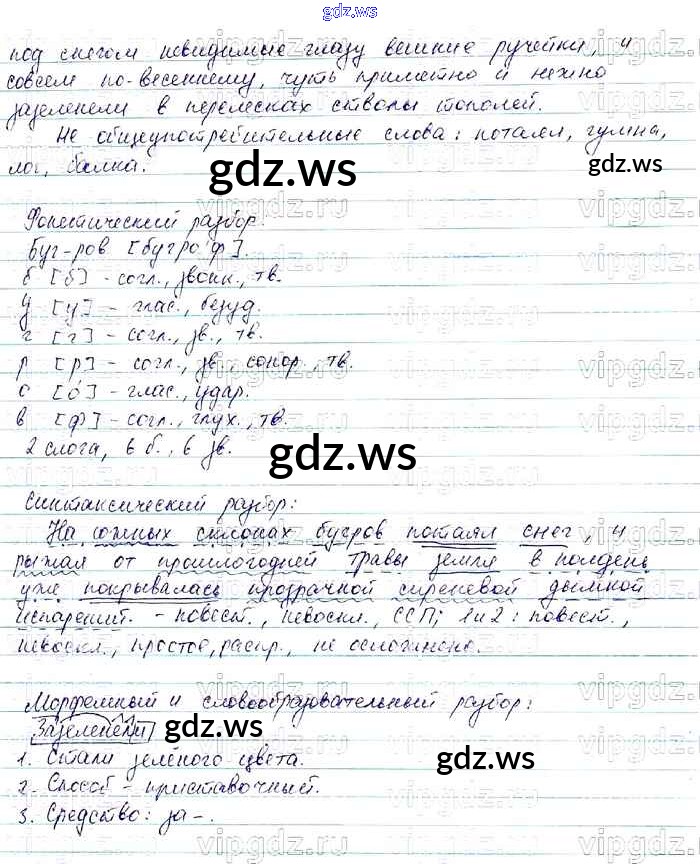 gdz.ws
под снегом невидимые глазу вешние ручейки, и
совсем по-весеннему, чуть приметно и нежно
зазеленели в перелесках стволы тополей.
Не общеупотребительные слова: потаял, гумна,
лог, балка.
gdz.ws
Фонетический разбор.
Буг-ров [бугро́ф].
б [б] - согл., звонк., тв.
у [у] - глас., безуд.
г [г] - согл., зв., тв.
р [р] - согл., зв., сонор., тв.
о [о́] - глас., удар.
в [ф] - согл., глух., тв.
2 слога, 6 б., 6 зв.
gdz.ws
Синтаксический разбор:
На южных склонах бугров потаял снег, и
рыжая от прошлогодней травы земля в полдень
уже покрывалась прозрачной сиреневой дымкой
испарений. - повест., невоскл., ССП; 1 и 2: повест.,
невоскл., простое, распр., не осложнено.
Морфемный и словообразовательный разбор:
Зазеленели
gdz.ws
1. Стали зелёного цвета.
gdz.ws
2. Способ - приставочный.
3. Средство: за-.
gdz.ws